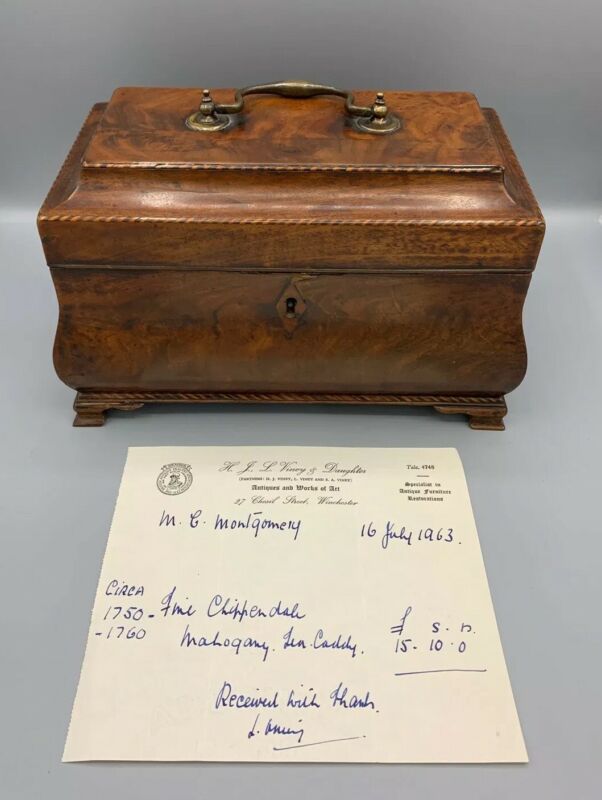 H. J. L. Viney & Daughter
(PARTNERS: H. J. VINEY, L. VINEY AND S. A. VINEY)
Antiques and Works of Art
27 Chesil Street, Winchester
Tele. 4748
Specialist in
Antique Furniture
Restorations
M. C. Montgomery 16 July 1963.
CIRCA
1750 - Fine Chippendale £ s. D.
- 1760 Mahogany. Tea Caddy. 15 - 10 . 0
Received with thanks.
L. Viney